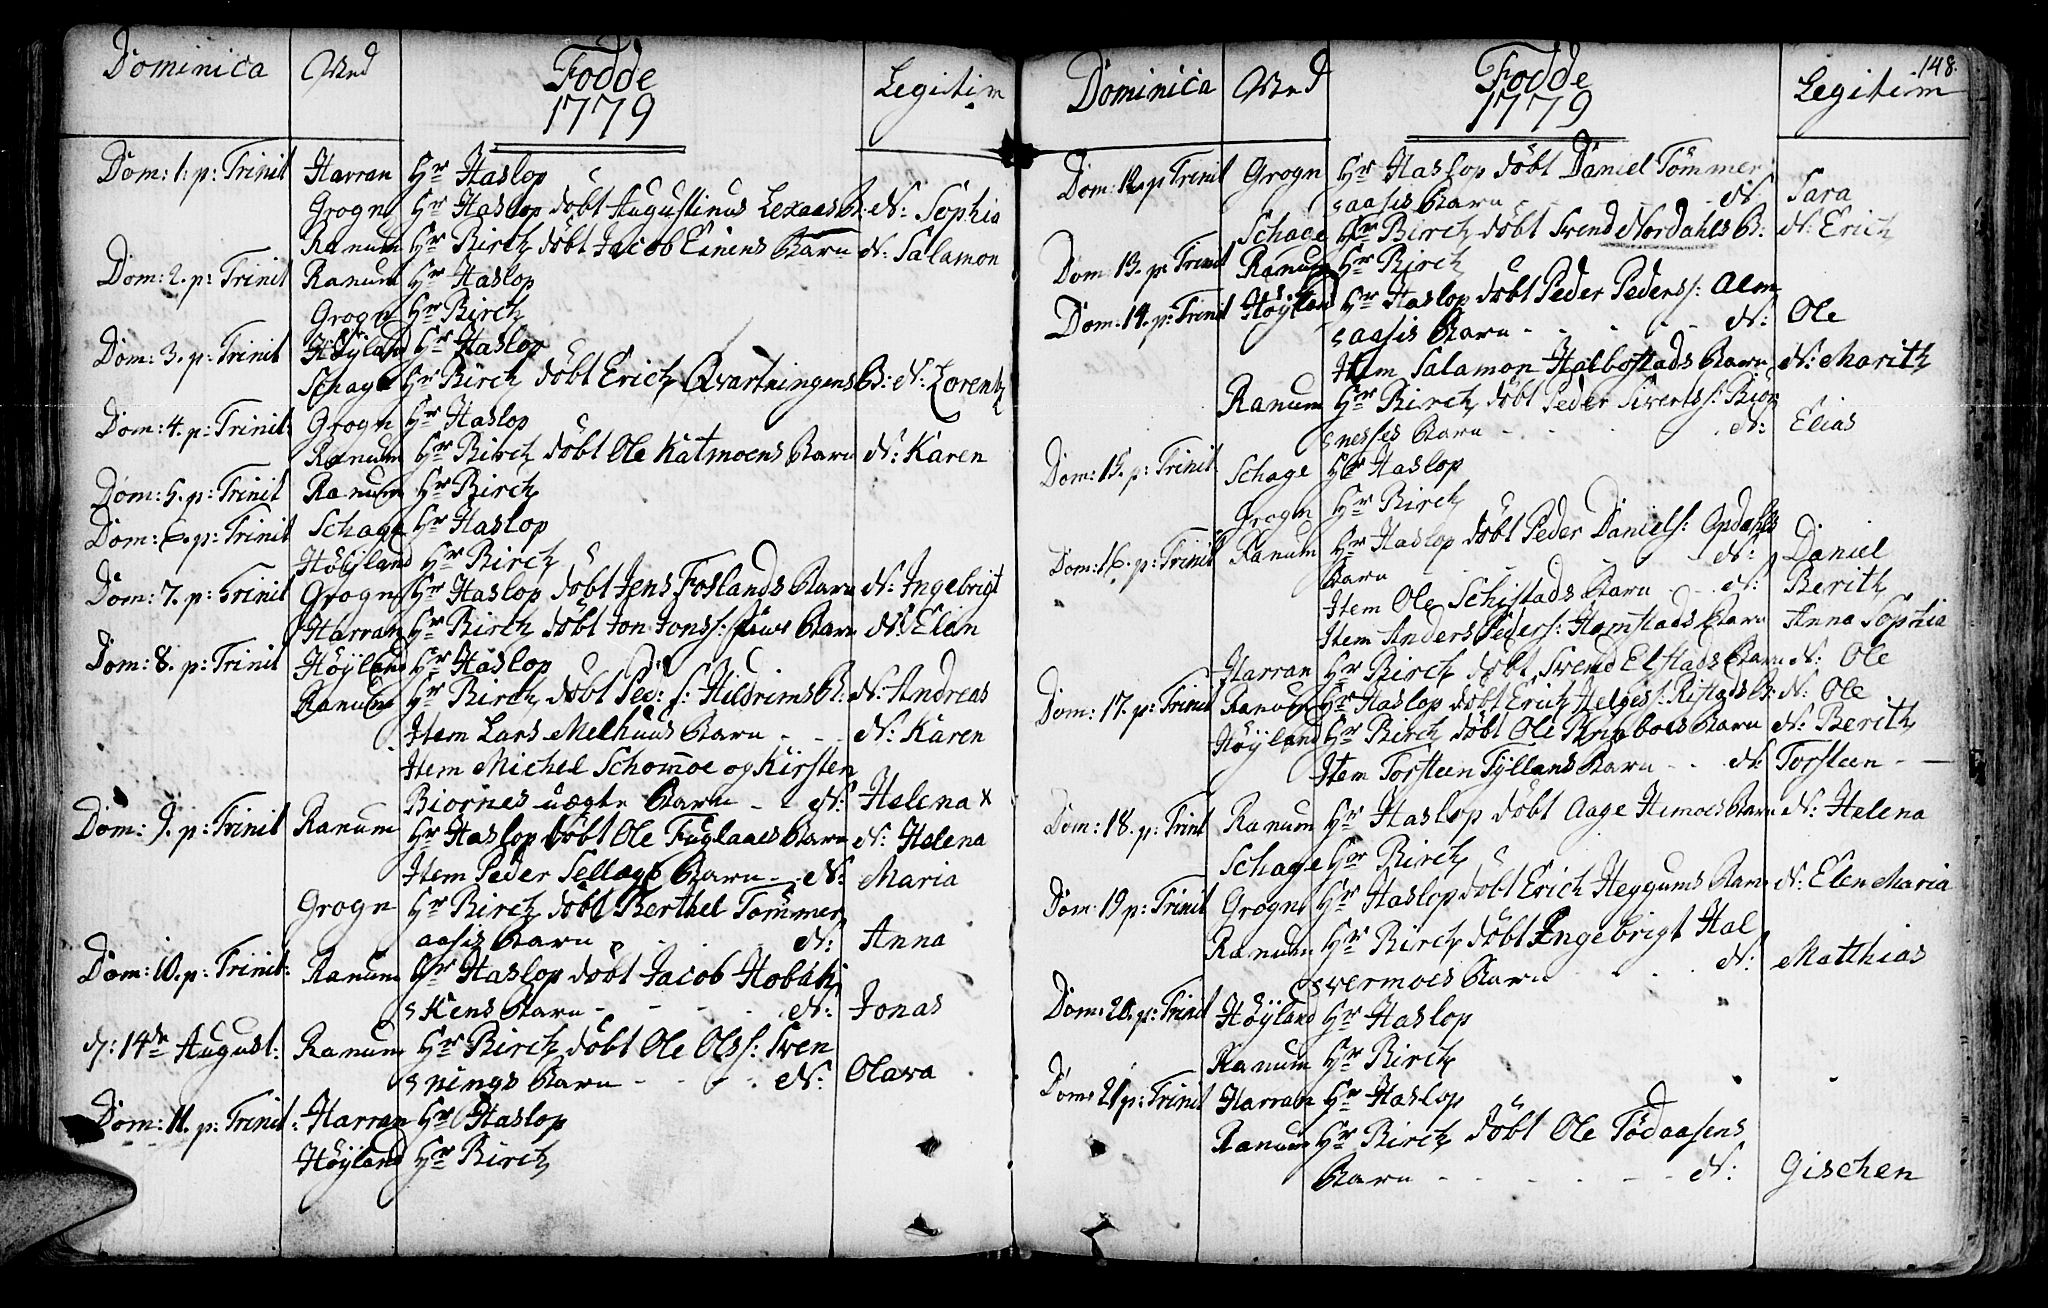 Dominica Ved Fødde 1779 Legitim
Dom: 1. p: Trinit Harran Hr Haslop
Grogn Hr Haslop döbt Augustinus Lexaas B: N: Sophia
Ranum Hr Birch döbt Jacob Einens Barn N: Salamon
Dom: 2. p: Trinit Ranum Hr Haslop
Grogn Hr Birch
Dom: 3. p: Trinit Höyland Hr Haslop
Schage Hr Birch döbt Erich Qvartningens B: N: Lorentz
Dom: 4. p: Trinit: Grogn Hr Haslop
Ranum Hr Birch döbt Ole Katmoens Barn N: Karen
Dom: 5. p: Trinit Ranum Hr Birch
Dom: 6. p: Trinit Schage Hr Haslop
Höyland Hr Birch
Dom: 7. p: Trinit Grogn Hr Haslop döbt Jens Foslands Barn N: Ingebrigt
Harran Hr Birch döbt Jon Jonss: Barn N: Elen
Dom: 8. p: Trinit Höyland Hr Haslop
Ranum Hr Birch döbt Ped: s: Hildrims B: N: Andreas
Item Lars Melhuus Barn - - N: Karen
Item Michel Schomoe og Kirsten
Biornes uægte Barn - - N: Helena x
Dom: 9. p: Trinit Ranum Hr Haslop döbt Ole Fuglaaes Barn N: Helena
Item Peder Sellægs Barn - N: Maria
Grogn Hr Birch döbt Berthel Tömmer
aasis Barn - - N: Anna
Dom: 10. p: Trinit: Ranum Hr Haslop döbt Jacob Hobaki
skens Barn - - - - N: Jonas
d: 14de August: Ranum Hr Birch döbt Ole Olss: Sven
snings Barn - - - - N: Olava
Dom: 11. p: Trinit: Harran Hr Haslop
Höyland Hr Birch
148.
Dominica Ved Fødde 1779 Legitim
Dom: 12. p Trinit Grogn Hr Haslop döbt Daniel Tömmer
saasis Barn - - - - N: Sara
Schage Hr Birch döbt Svend Nordahls B: N: Erich
Dom: 13. p: Trinit Ranum Hr Birch
Dom: 14. p: Trinit Höyland Hr Haslop döbt Peder Peders: Alm
saasis Barn - - - - N: Ole
Item Salamon Halbostads Barn N: Marith
Ranum Hr Birch döbt Peder Siverts: Biör
snesses Barn - - - - N: Elias
Dom: 15. p: Trinit Schage Hr Haslop
Grogn Hr Birch
Dom: 16. p: Trinit Ranum Hr Haslop döbt Peder Daniels: Opdahls
Barn - - N: Daniel
Item Ole Schistads Barn - - N: Berith
Item Anders Peders: Homstads Barn Anna Sophia
Harran Hr Birch döbt Svend Elstads Barn N: Ole
Dom: 17. p: Trinit Ranum Hr Haslop döbt Erich Helges: B: N: Ole
Höyland Hr Birch döbt Ole Barn N: Berith
Item Torsteen Tyllands Barn - - N: Torsteen - -
Dom: 18. p: Trinit Ranum Hr Haslop döbt Aage Hemoes Barn N: Helena
Schage Hr Birch
Dom: 19 p: Trinit Grogn Hr Haslop döbt Erich Heggums Barn N: Elen Maria
Ranum Hr Birch döbt Ingebrigt Hal
svermoes Barn - - - N: Matthias
Dom: 20. p: Trinit Höyland Hr Haslop
Ranum Hr Birch
Dom: 21 p: Trinit Harran Hr Haslop
Ranum Hr Birch döbt Ole Tödaasens
Barn - - - - - N: Gischen